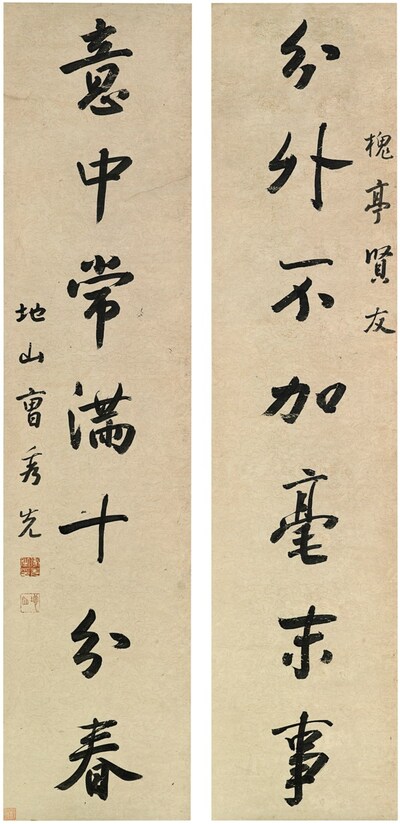 槐亭賢友
分外不加毫末事
意中常滿十分春
地山曺秀先